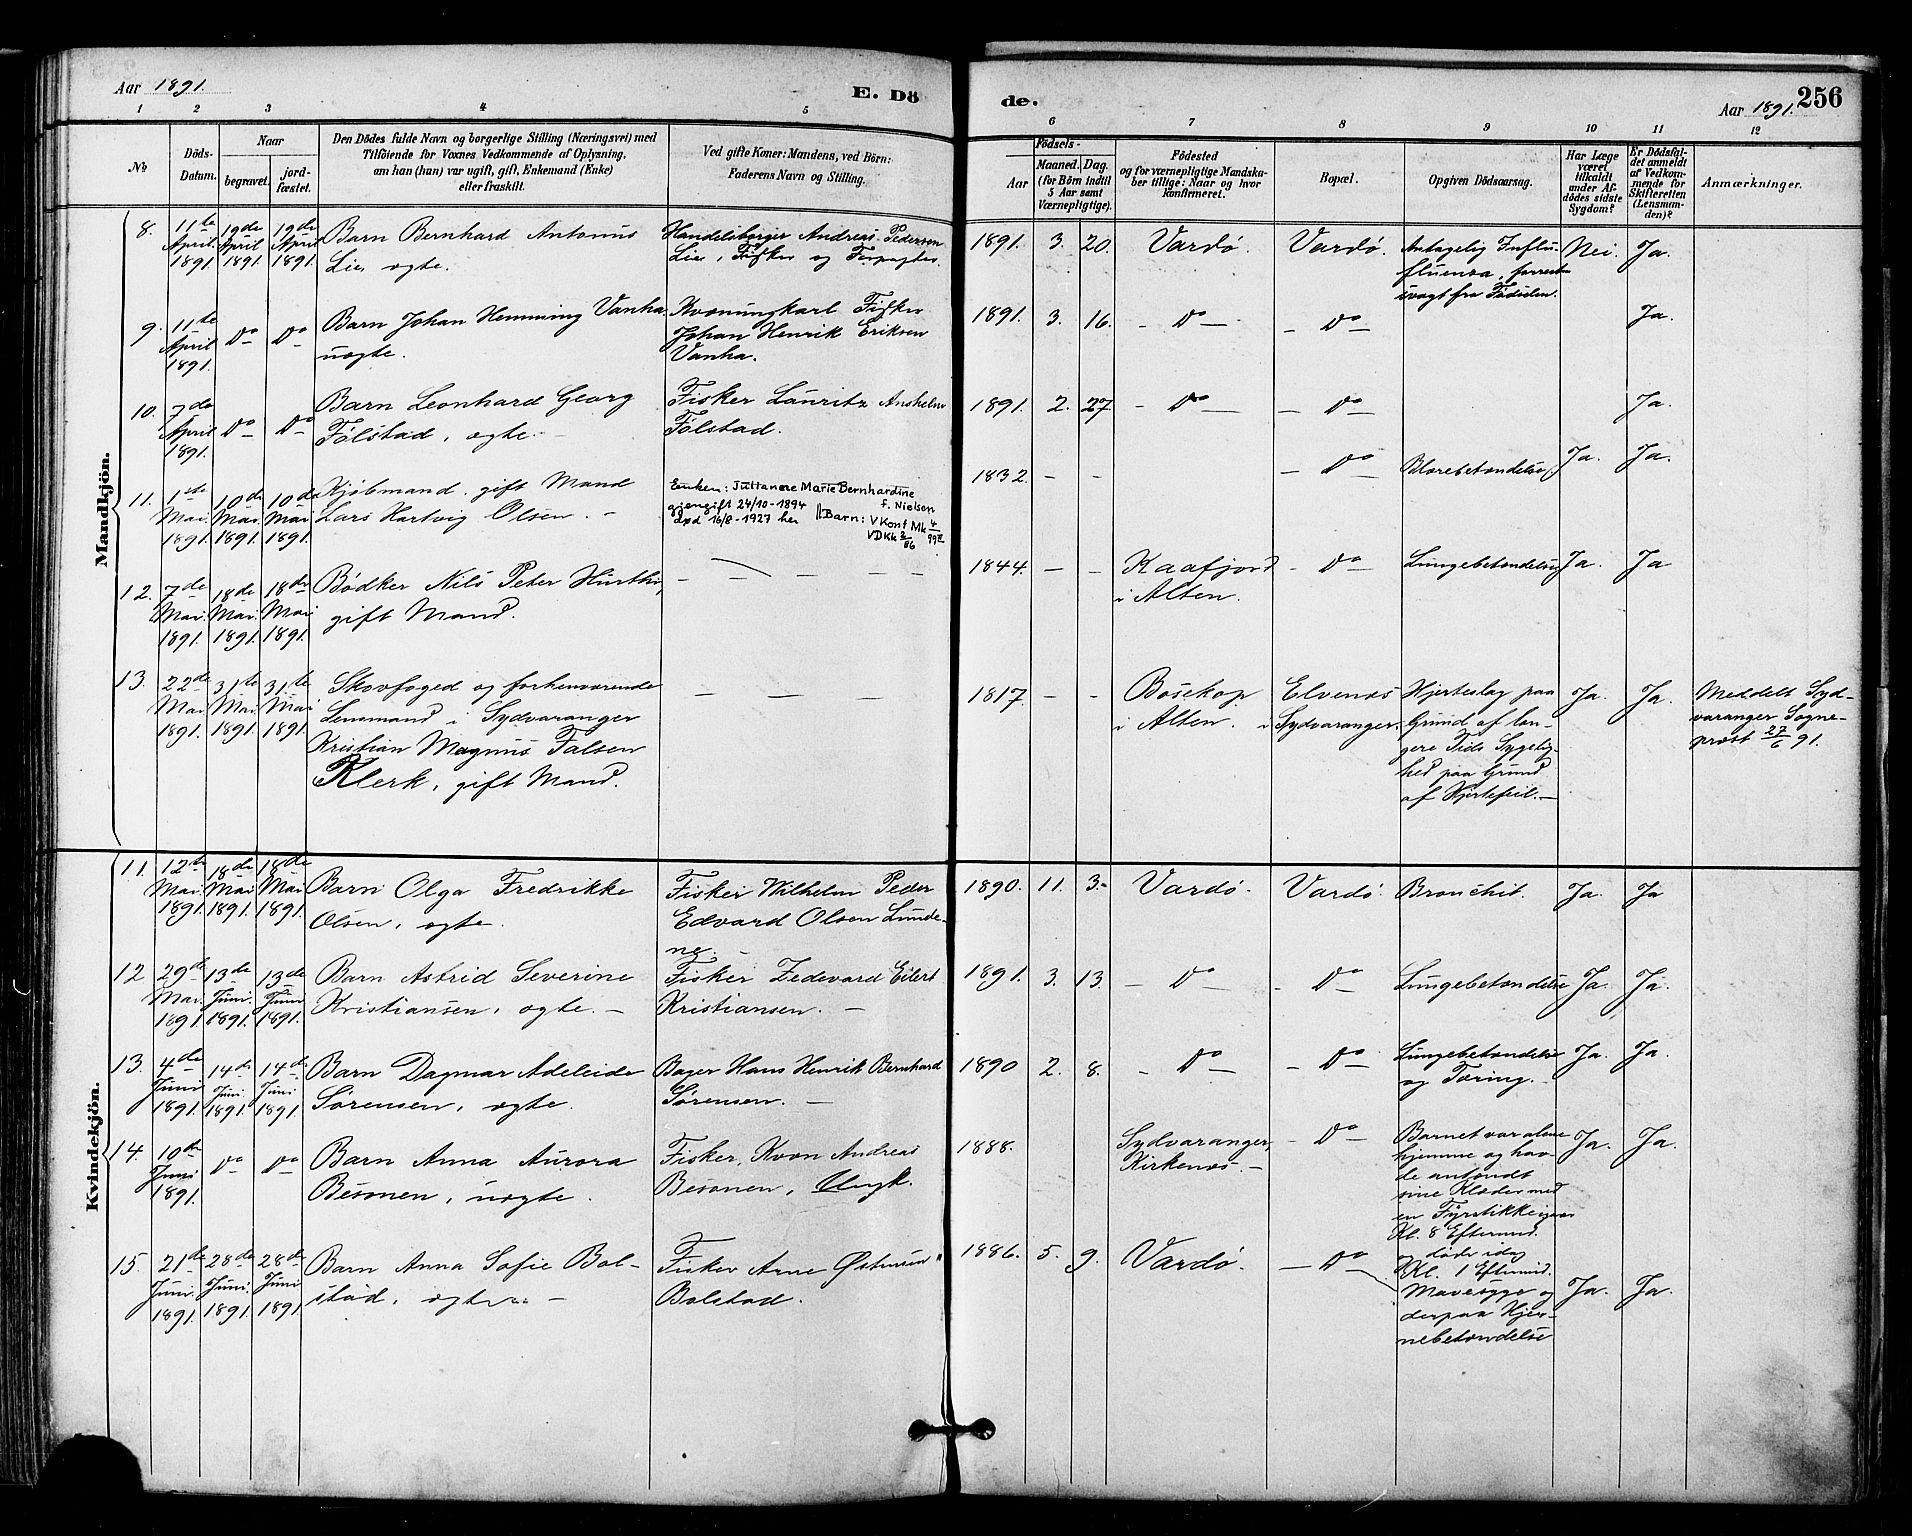 Aar 1891.
E. Dö
de.
Aar 1891.
256
1 2 3 4 5
6 7 8 9 10 11 12
No
Döds-
Datum.
Naar
begravet.
jord-
fæstet.
Den Dödes fulde Navn og borgerlige Stilling (Næringsvei) med
Tilföiende for Voxnes Vedkommende af Oplysning,
om han (hun) var ugift, gift, Enkemand (Enke)
eller fraskilt.
Ved gifte Koner: Mandens, ved Börn:
Faderens Navn og Stilling.
Födsels-
Aar
Maaned. Dag.
(for Börn indtil
5 Aar samt
Værnepligtige).
Födested
og for værnepligtige Mandska-
ber tillige: Naar og hvor
konfirmeret.
Bopæl.
Opgiven Dödsaarsag.
Har Læge
været
tilkaldt
under Af-
dödes sidste
Sygdom?
Er Dödsfal-
det anmeldt
af Vedkom-
mende for
Skifteretten
(Lensman-
den)?
Anmærkninger.
Mandkjön.
8.
11te
April
1891.
19de
April
1891.
19de
April
1891.
Barn Bernhard Antonus
Lie, ægte.
Handelsborger Andreas Pedersen
Lie, Fisker og
1891. 3. 20. Vardø. Vardø.
Antagelig Influ-
fluenza, forresten
svagt fra Fødselen.
Nei. Ja.
9.
11te
April
1891.
Do Do
Barn Johan Hemming Vanha
uægte.
Kvænungkarl Fisker
Johan Henrik Eriksen
Vanha.
1891. 3. 16. - Do - - Do - Ja.
10.
7de
April
1891.
Do Do
Barn Leonhard Georg
Følstad, ægte. -
Fisker Lauritz Anshelm
Følstad.
1891. 2. 27. - Do - - Do - Ja.
11.
1ste
Mai.
1891.
10de
Mai.
1891.
10de
Mai
1891.
Kjøbmand, gift Mand
Lars Hartvig Olsen. -
Enken: Juttanere Marie Bernhardine
f. Nielsen
gjengift 24/10-1894
død 16/8-1927 her
Barn: V Konf Mk 4/99
VDKk 2/86
1832. - - - Do - Blærebetændelse. Ja. Ja.
12.
7de
Mai.
1891.
18de
Mai.
1891.
18de
Mai
1891.
Bødker Nils Peter Hurthi,
gift Mand.
- - - - -
1844. - - Kaafjord
i Alten.
- Do - Lungebetændelse Ja. Ja
13.
22de
Mai
1891.
31te
Mai
1891.
31te
Mai
1891.
Skovfoged og forhenværende
Lensmand i Sydvaranger
Kristian Magnus Falsen
Klerk, gift Mand.
- - -
1817. - - Bosekop
i Alten.
Elvenæs
i Sydvaranger.
Hjerteslag paa
Grund af læn-
gere Tids Sygelig-
hed paa Grund
af Hjertefeil. -
Ja. Ja.
Meddelt Syd-
varanger Sogne-
præst 27/6 91.
Kvindekjön.
11.
12te
Mai.
1891.
18de
Mai
1891.
18de
Mai
1891.
Barn Olga Fredrikke
Olsen, ægte.
Fisker Wilhelm Peder
Edvard Olsen Lunde-
ng.
1890. 11. 3.- Vardø. Vardø. Bronchit. Ja. Ja
12
29de
Mai.
1891.
13de
Juni.
1891.
13de
Juni
1891.
Barn Astrid Severine
Kristiansen, ægte. -
Fisker Zedevard Eilert
Kristiansen. -
1891. 3. 13. - Do - - Do - Lungebetændelse Ja. Ja.
13.
4de
Juni
1891.
14de
Juni.
1891.
14de
Juni
1891.
Barn Dagmar Adeleide
Sørensen, ægte.
Bager Hans Henrik Bernhard
Sørensen. -
1890 2. 8. - Do - - Do -
Lungebetændelse
og Tæring. -
Ja. Ja.
14.
10de
Juni
1891.
Do Do
Barn Anna Aurora
Besonen, uægte.
Fisker, Kvæn Andreas
Besonen, Ungk.
1888.
Sydvaranger,
Kirkenæs. -
- Do -
Barnet var alene
hjemme og hav-
de antændt
sine Klæder med
en Fyrstikke igaar
Kl. 8 Eftermid.
og døde idag
Kl. 1 Eftermid.
Ja. Ja.
15.
21de
Juni.
1891.
28de
Juni.
1891.
28de
Juni
1891.
Barn Anna Sofie Bol-
stad, ægte. -
Fisker Arne Østensen
Bolstad.
1886. 5. 9. Vardø. - Do -
Mavesyge og
derpaa Hjer-
nebetændelse
Ja. Ja.